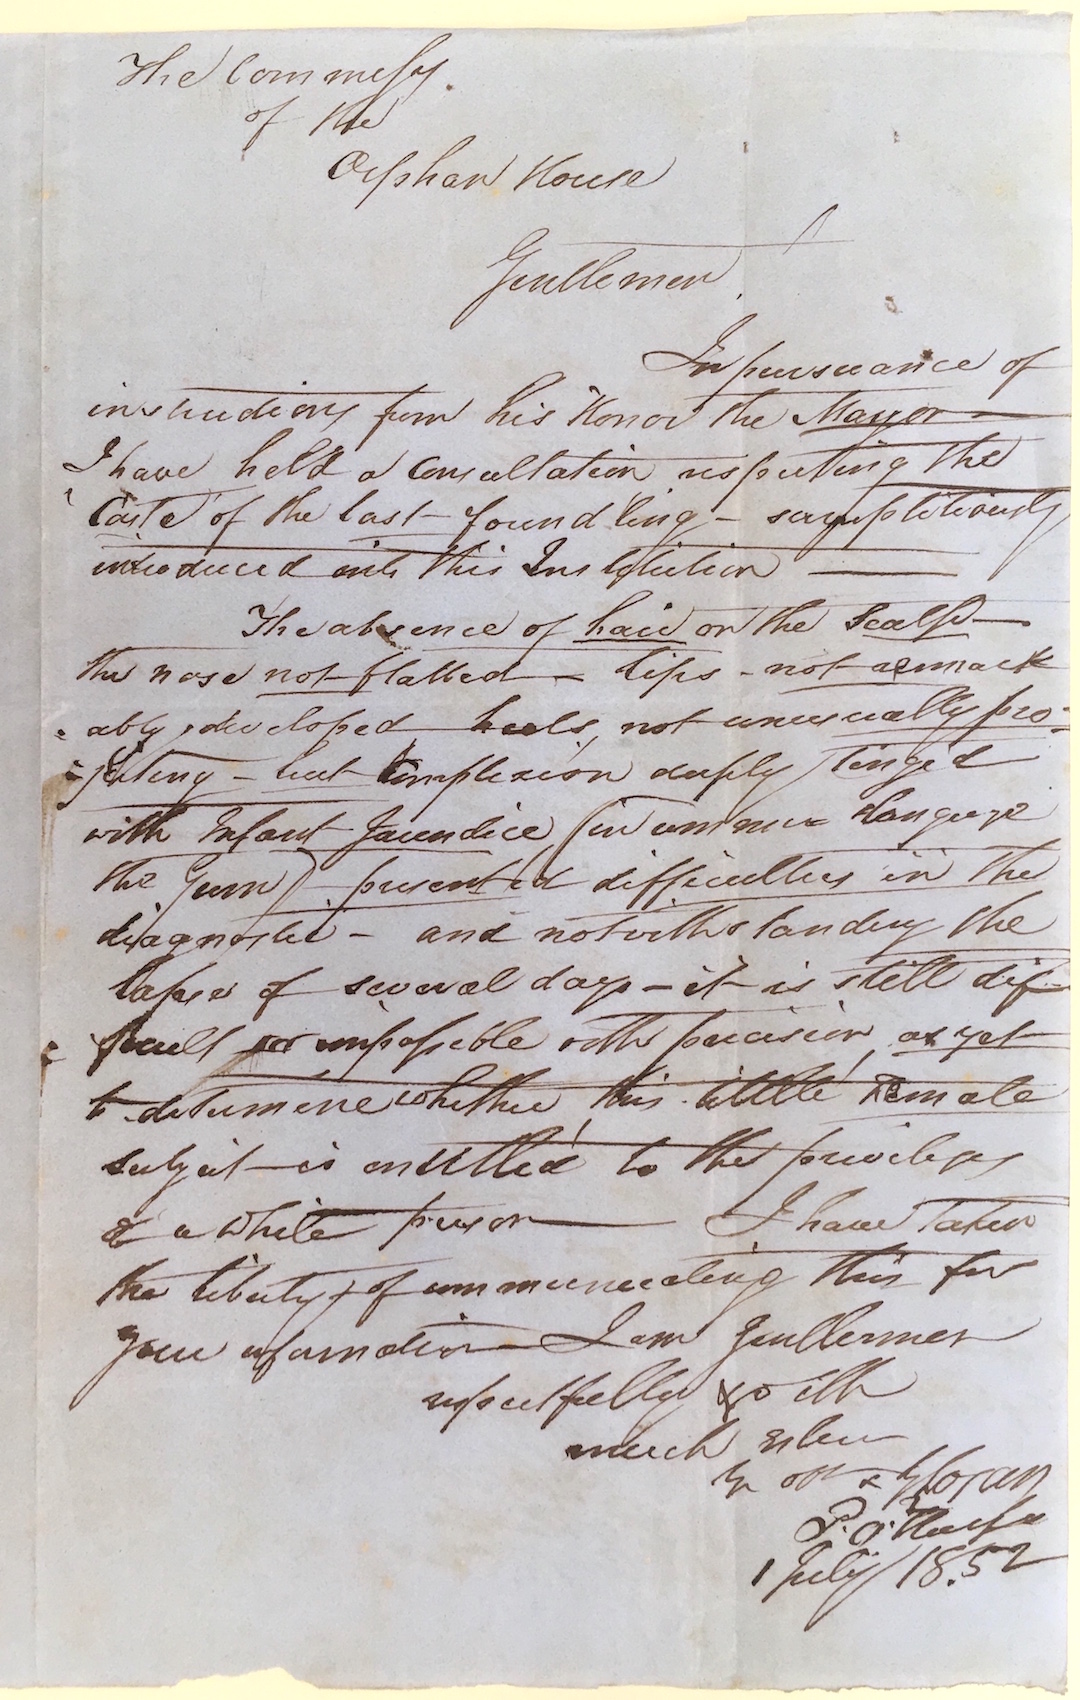 The Commissrs.
of the
Orphan House
Gentlemen
In pursuance of
instructions from his Honor the Mayor —
I have held a Consultation respecting the
Caste of the last foundling – surreptitiously
introduced into this Institution —
The absence of hair on the Scalp —
the nose not flatted – lips – not remark
=ably developed heels, not unusually pro=
=jecting – but Complexion deeply tinged
with Infant Jaundice (in common Language
the Gum) presented difficulties in the
diagnostic – and notwithstanding the
lapse of several days – it is still dif-
=ficult or impossible with precision, as yet
to determine whether this little Female
subject – is entitled to the privileges
of a white person — I have taken
the liberty of communicating this for
your information – I am Gentlemen
respectfully with
much esteem
Yr obt &
1 July / 1852